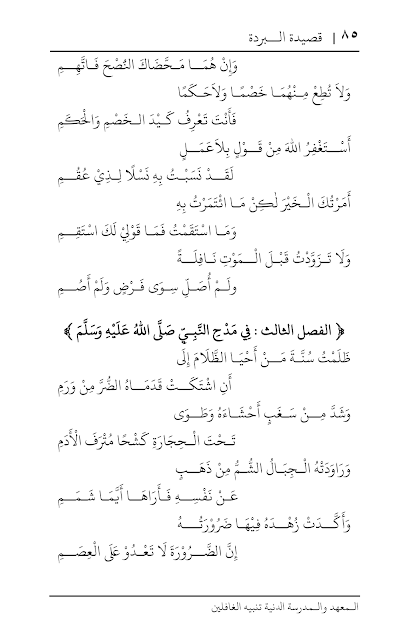 ٨٥ | قصيدة الـــبردة
وَإِنْ هُمَـا مَـحَّضَاكَ النُّصْحَ فَـاتَّهِـــمِ
وَلَا تُطِعْ مِـنْهُمَـا خَصْمًـا وَلَاحَكَمًـا
فَـأَنْتَ تَعْرِفُ كَـيْدَ الـخَصْمِ وَالْحَكَمِ
أَسْـتَغْفِرُ اللهَ مِنْ قَـوْلٍ بِلَاعَمَـلٍ
لَقَـدْ نَسَبْـتُ بِهِ نَسْلًا لِـذِيْ عُقُـمِ
أَمَرْتُكَ الْـخَيْرَ لَٰكِنْ مَـا ائْتَمَرْتُ بِهِ
وَمَـا اسْتَقَمْتُ فَمَـا قَوْلِيْ لَكَ اسْتَقِـمِ
وَلَا تَـزَوَّدْتُ قَبْـلَ الْـمَوْتِ نَـافِلَـةً
ولَـمْ أُصَـلِّ سِـوَى فَـرْضٍ وَلَمْ أَصُـمِ
﴿ الفصل الثالث : فِي مَدْحِ النَّبِـيِّ صَلَّى اللهُ عَلَيْهِ وَسَلَّمَ ﴾
ظَلَمْتُ سُنَّـةَ مَـنْ أَحْيَـا الظَّلَامَ إِلَى
أَنِ اشْتَكَـتْ قَدَمَـاهُ الضُّرَّ مِنْ وَرَمِ
وَشَدَّ مِـنْ سَغَبٍ أَحْشَـاءَهُ وَطَـوَى
تَـحْتَ الْـحِجَارَةِ كَشْحًا مُتْرَفَ الْأَدَمِ
وَرَاوَدَتْهُ الْـجِبَـالُ الشُّـمُّ مِنْ ذَهَـبٍ
عَـنْ نَفْسِـهِ فَـأَرَاهَـا أَيَّمَـا شَمَـمِ
وَأَكَّـدَتْ زُهْـدَهُ فِيْهَـا ضَرُوْرَتُـهُ
إِنَّ الضَّـرُوْرَةَ لَا تَعْـدُوْ عَلَى الْعِصَـمِ
الـمعهد والـمدرسة الدنية تنبيه الغافلين